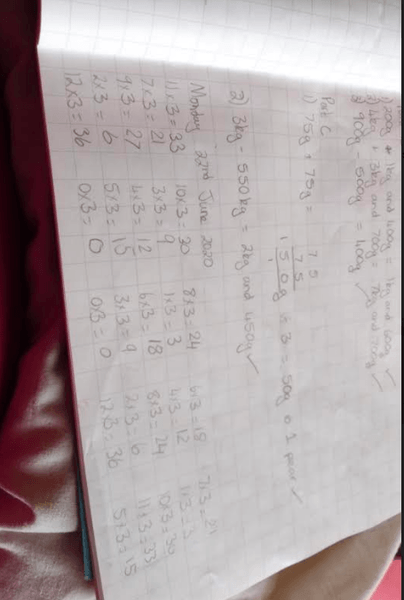 1) 200g + 1kg and 400g = 1kg and 600g ✓
2) 4kg + 3kg and 700g = 7kg and 700g ✓
3) 900g - 500g = 400g ✓
Part C
75
1) 75g + 75g = 75
150g ÷ 3 = 50g 1 pear ✓
1
2) 3kg - 550kg = 2kg and 450g ✓
Monday 22nd June 2020
11x3 = 33 10x3 = 30 8x3 = 24 6x3 = 18 7x3 = 21
7x3 = 21 3x3 = 9 1x3 = 3 4x3 = 12 1x3 = 3
9x3 = 27 4x3 = 12 6x3 = 18 8x3 = 24 10x3 = 30
2x3 = 6 5x3 = 15 3x3 = 9 2x3 = 6 11x3 = 33
12x3 = 36 0x3 = 0 0x3 = 0 12x3 = 36 5x3 = 15